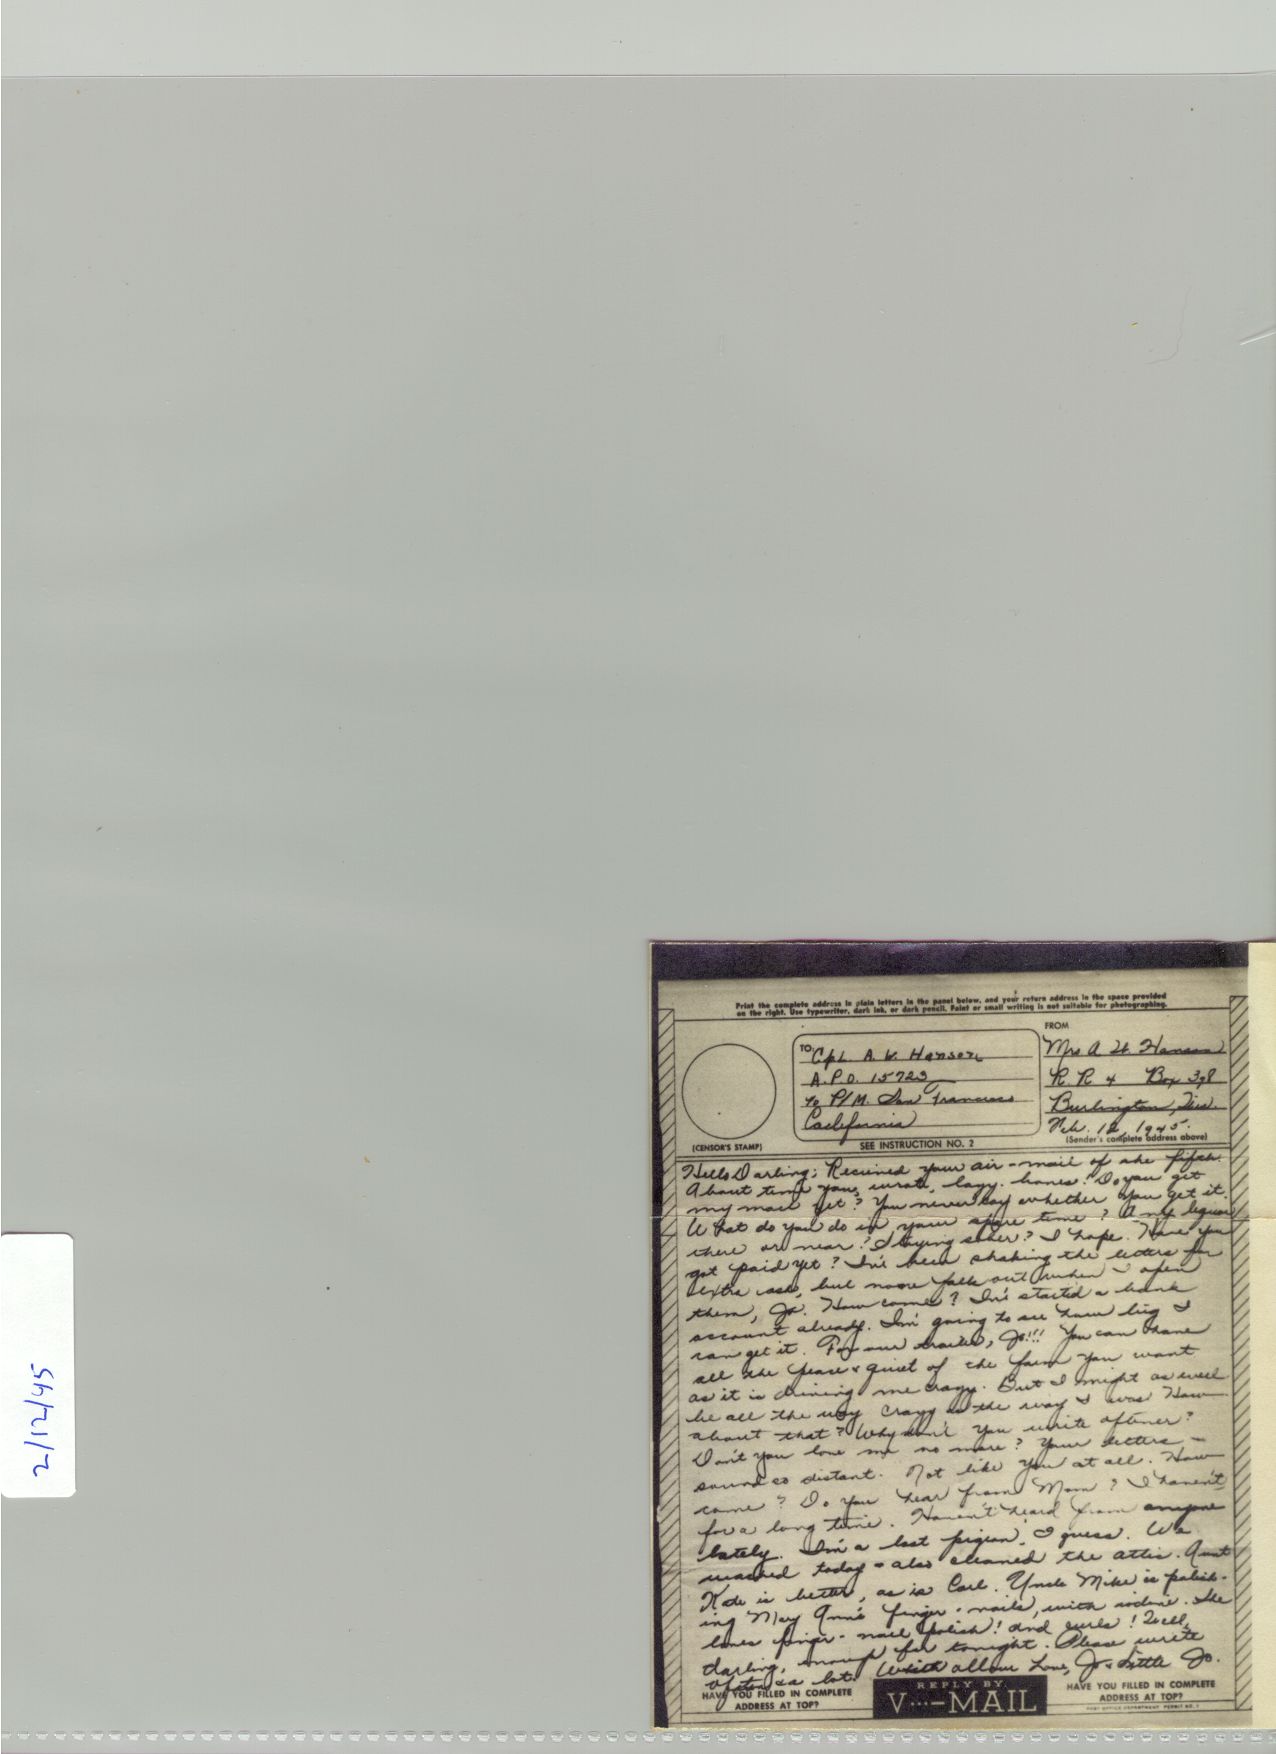 Print the complete address in plain letters in the panel below, and your return address in the space provided
on the right. Use typewriter, dark ink, or dark pencil. Faint or small writing is not suitable for photographing.
FROM
TO
Cpl. A. W. Hanson
A.P.O. 15723
℅ P/M. San Francisco
California
Mrs A W. Hanson
R. R 4 Box 398
Burlington, Wis.
Feb. 12, 1945.
(Sender's complete address above)
(CENSOR'S STAMP)
SEE INSTRUCTION NO. 2
Hello Darling; Received your air-mail of the fifth.
About time you wrote, lazy-bones! Do you get
my mail yet? You never say whether you get it.
What do you do in your spare time? Any liquor
there or near? Staying sober? I hope. Have you
got paid yet? I've been shaking the letters for
extra cash, but none falls out when I open
them, Jo. How come? I've started a bank
account already. I'm going to see how big I
can get it. For our trailer, Jo!!! You can have
all the peace & quiet of the farm you want
as it is driving me crazy. But I might as well
be all the way crazy as the way I was. How
about that? Why don't you write oftener?
Don't you love me no more? Your letters
sound so distant. Not like you at all. How
come? Do you hear from Mom? I haven't
for a long time. Haven't heard from anyone
lately. I'm a lost pigeon, I guess. We
washed today & also cleaned the attic. Aunt
Kate is better, as is Carl. Uncle Mike is polish-
ing Mary Ann's finger-nails, with iodine. She
loves finger-nail polish! and curls! Well,
darling, enough for tonight. Please write
often & a lot. With all our Love, Jo & Little Jo.
HAVE YOU FILLED IN COMPLETE
ADDRESS AT TOP?
REPLY BY
V···—MAIL
HAVE YOU FILLED IN COMPLETE
ADDRESS AT TOP?
POST OFFICE DEPARTMENT PERMIT NO. 1
2/12/45